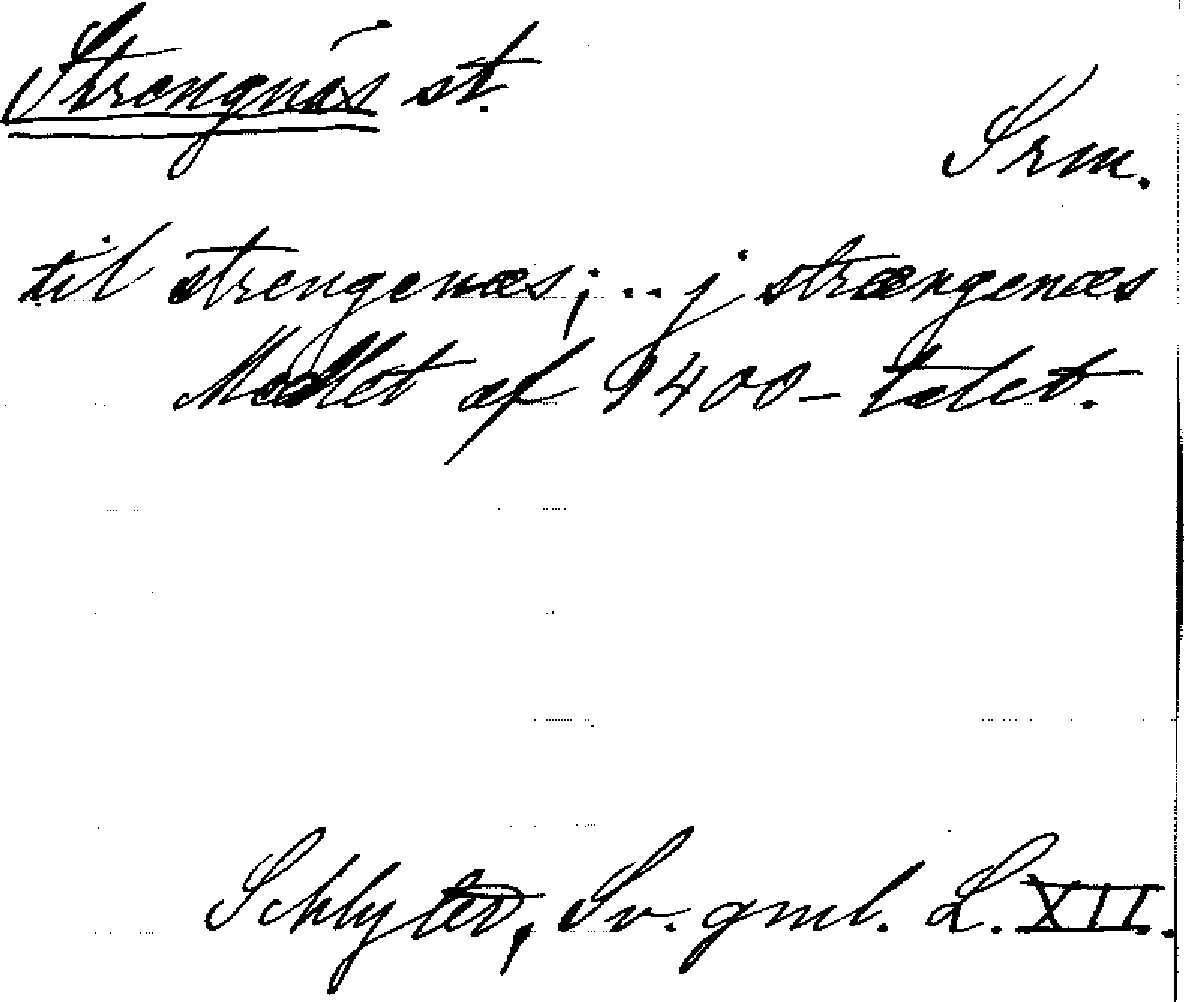 Strengnäs st.
Srm.
til strengenæs; .. j strængenæs
Medlet af 1400-talet.
Schlyter, Sv. gml. L. XII.